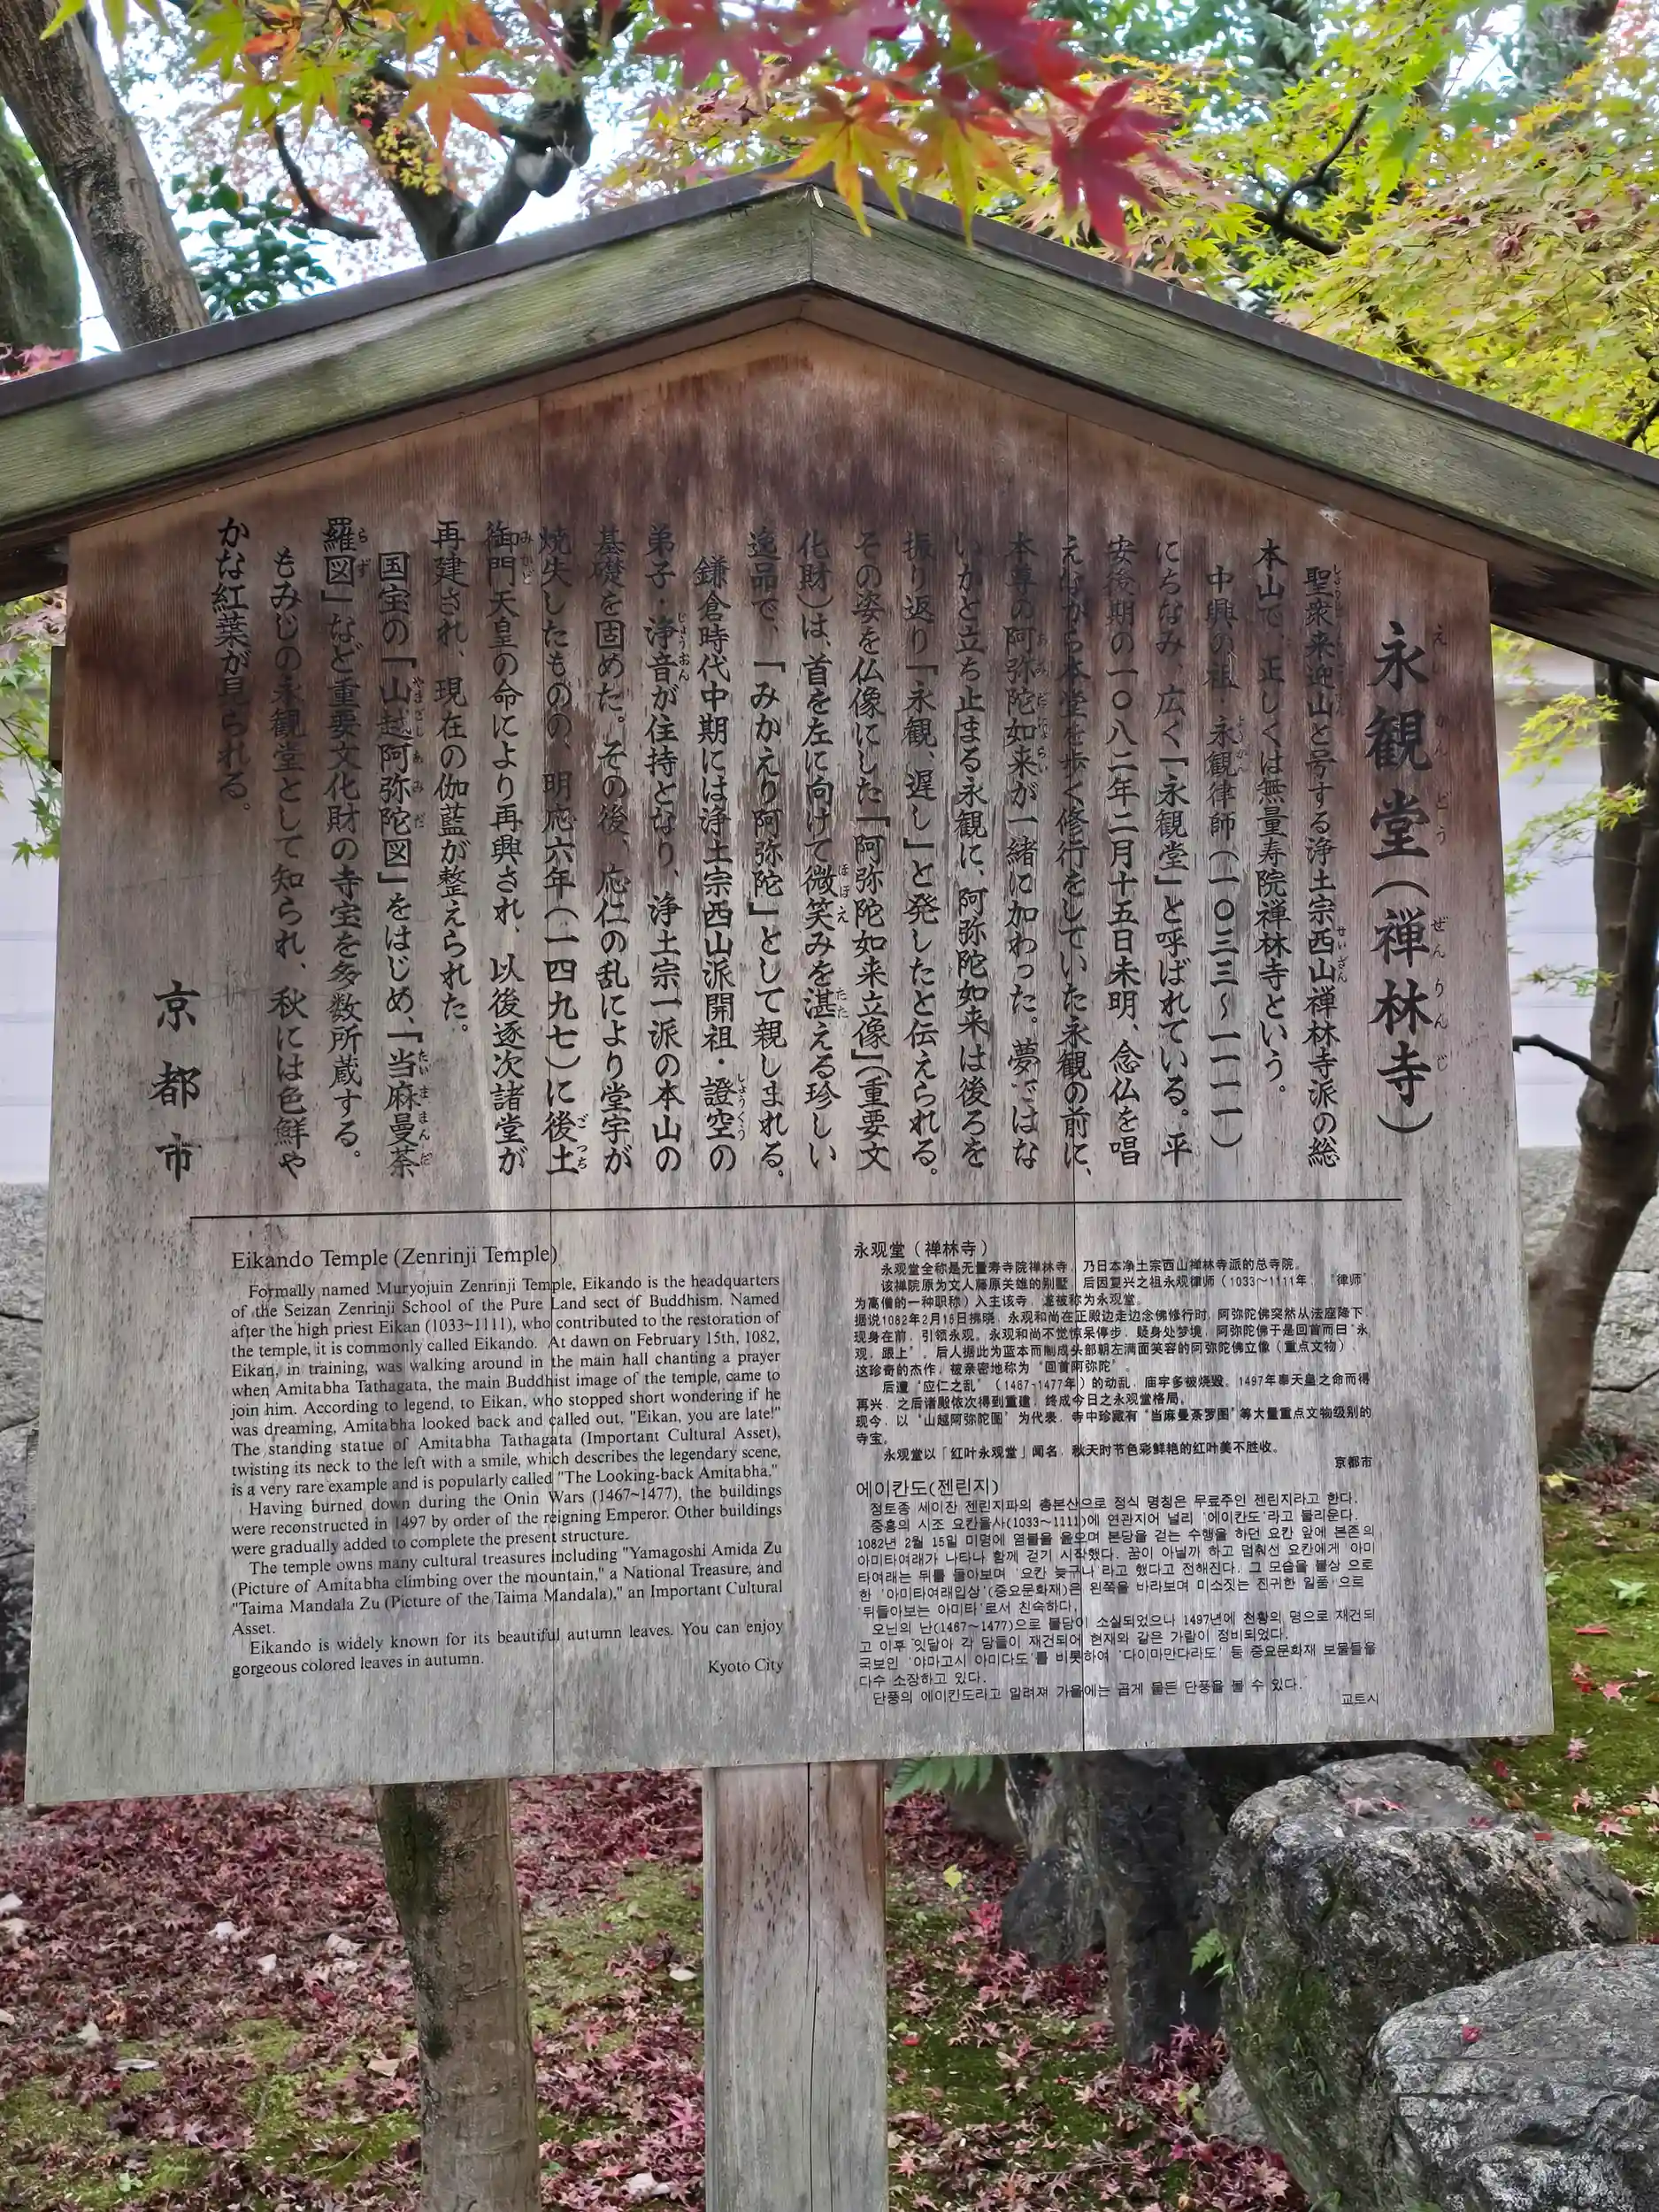 永観堂(禅林寺)
聖衆来迎山と号する浄土宗西山禅林寺派の総
本山で、正しくは無量寿院禅林寺という。
中興の祖・永観律師(一〇三三〜一一一一)
にちなみ、広く「永観堂」と呼ばれている。平
安後期の一〇八二年二月十五日未明、念仏を唱
えながら本堂を歩く修行をしていた永観の前に、
本尊の阿弥陀如来が一緒に加わった。夢ではな
いかと立ち止まる永観に、阿弥陀如来は後ろを
振り返り「永観、遅し」と発したと伝えられる。
その姿を仏像にした「阿弥陀如来立像」(重要文
化財)は、首を左に向けて微笑みを湛える珍しい
逸品で、「みかえり阿弥陀」として親しまれる。
鎌倉時代中期には浄土宗西山派開祖・證空の
弟子・浄音が住持となり、浄土宗一派の本山の
基礎を固めた。その後、応仁の乱により堂宇が
焼失したものの、明応六年(一四九七)に後土
御門天皇の命により再興され、以後逐次諸堂が
再建され、現在の伽藍が整えられた。
国宝の「山越阿弥陀図」をはじめ、「当麻曼荼
羅図」など重要文化財の寺宝を多数所蔵する。
もみじの永観堂として知られ、秋には色鮮や
かな紅葉が見られる。
京都市
Eikando Temple (Zenrinji Temple)
Formally named Muryojuin Zenrinji Temple, Eikando is the headquarters
of the Seizan Zenrinji School of the Pure Land sect of Buddhism. Named
after the high priest Eikan (1033~1111), who contributed to the restoration of
the temple, it is commonly called Eikando. At dawn on February 15th, 1082,
Eikan, in training, was walking around in the main hall chanting a prayer
when Amitabha Tathagata, the main Buddhist image of the temple, came to
join him. According to legend, to Eikan, who stopped short wondering if he
was dreaming, Amitabha looked back and called out, "Eikan, you are late!"
The standing statue of Amitabha Tathagata (Important Cultural Asset),
twisting its neck to the left with a smile, which describes the legendary scene,
is a very rare example and is popularly called "The Looking-back Amitabha."
Having burned down during the Onin Wars (1467~1477), the buildings
were reconstructed in 1497 by order of the reigning Emperor. Other buildings
were gradually added to complete the present structure.
The temple owns many cultural treasures including "Yamagoshi Amida Zu
(Picture of Amitabha climbing over the mountain," a National Treasure, and
"Taima Mandala Zu (Picture of the Taima Mandala)," an Important Cultural
Asset.
Eikando is widely known for its beautiful autumn leaves. You can enjoy
gorgeous colored leaves in autumn.
Kyoto City
永观堂(禅林寺)
永观堂全称是无量寿寺院禅林寺,乃日本净土宗西山禅林寺派的总寺院。
该禅院原为文人藤原关雄的别墅,后因复兴之祖永观律师(1033~1111年,"律师"
为高僧的一种职称)入主该寺,遂被称为永观堂。
据说1082年2月15日拂晓,永观和尚在正殿边走边念佛修行时,阿弥陀佛突然从法座降下,
现身在前,引领永观。永观和尚不觉惊呆停步,疑身处梦境,阿弥陀佛于是回首而曰"永
观,跟上"。后人据此为蓝本而制成头部朝左满面笑容的阿弥陀佛立像(重点文物),
这珍奇的杰作,被亲密地称为"回首阿弥陀"。
后遭"应仁之乱"(1467-1477年)的动乱,庙宇多被烧毁。1497年奉天皇之命而得
再兴,之后诸殿依次得到重建,终成今日之永观堂格局。
现今,以"山越阿弥陀图"为代表,寺中珍藏有"当麻曼荼罗图"等大量重点文物级别的
寺宝。
永观堂以「红叶永观堂」闻名,秋天时节色彩鲜艳的红叶美不胜收。
京都市
에이칸도(젠린지)
정토종 세이잔 젠린지파의 총본산으로 정식 명칭은 무료주인 젠린지라고 한다.
중흥의 시조 요칸율사(1033~1111)에 연관지어 널리 '에이칸도'라고 불리운다.
1082년 2월 15일 미명에 염불을 읊으며 본당을 걷는 수행을 하던 요칸 앞에 본존의
아미타여래가 나타나 함께 걷기 시작했다. 꿈이 아닐까 하고 멈춰선 요칸에게 아미
타여래는 뒤를 돌아보며 '요칸 늦구나'라고 했다고 전해진다. 그 모습을 불상 으로
한 '아미타여래입상'(중요문화재)은 왼쪽을 바라보며 미소짓는 진귀한 일품 으로
'뒤돌아보는 아미타'로서 친숙하다.
오닌의 난(1467~1477)으로 불당이 소실되었으나 1497년에 천황의 명으로 재건되
고 이후 잇달아 각 당들이 재건되어 현재와 같은 가람이 정비되었다.
국보인 '야마고시 아미다도'를 비롯하여 '다이마만다라도' 등 중요문화재 보물들을
다수 소장하고 있다.
단풍의 에이칸도라고 알려져 가을에는 곱게 물든 단풍을 볼 수 있다.
교토시